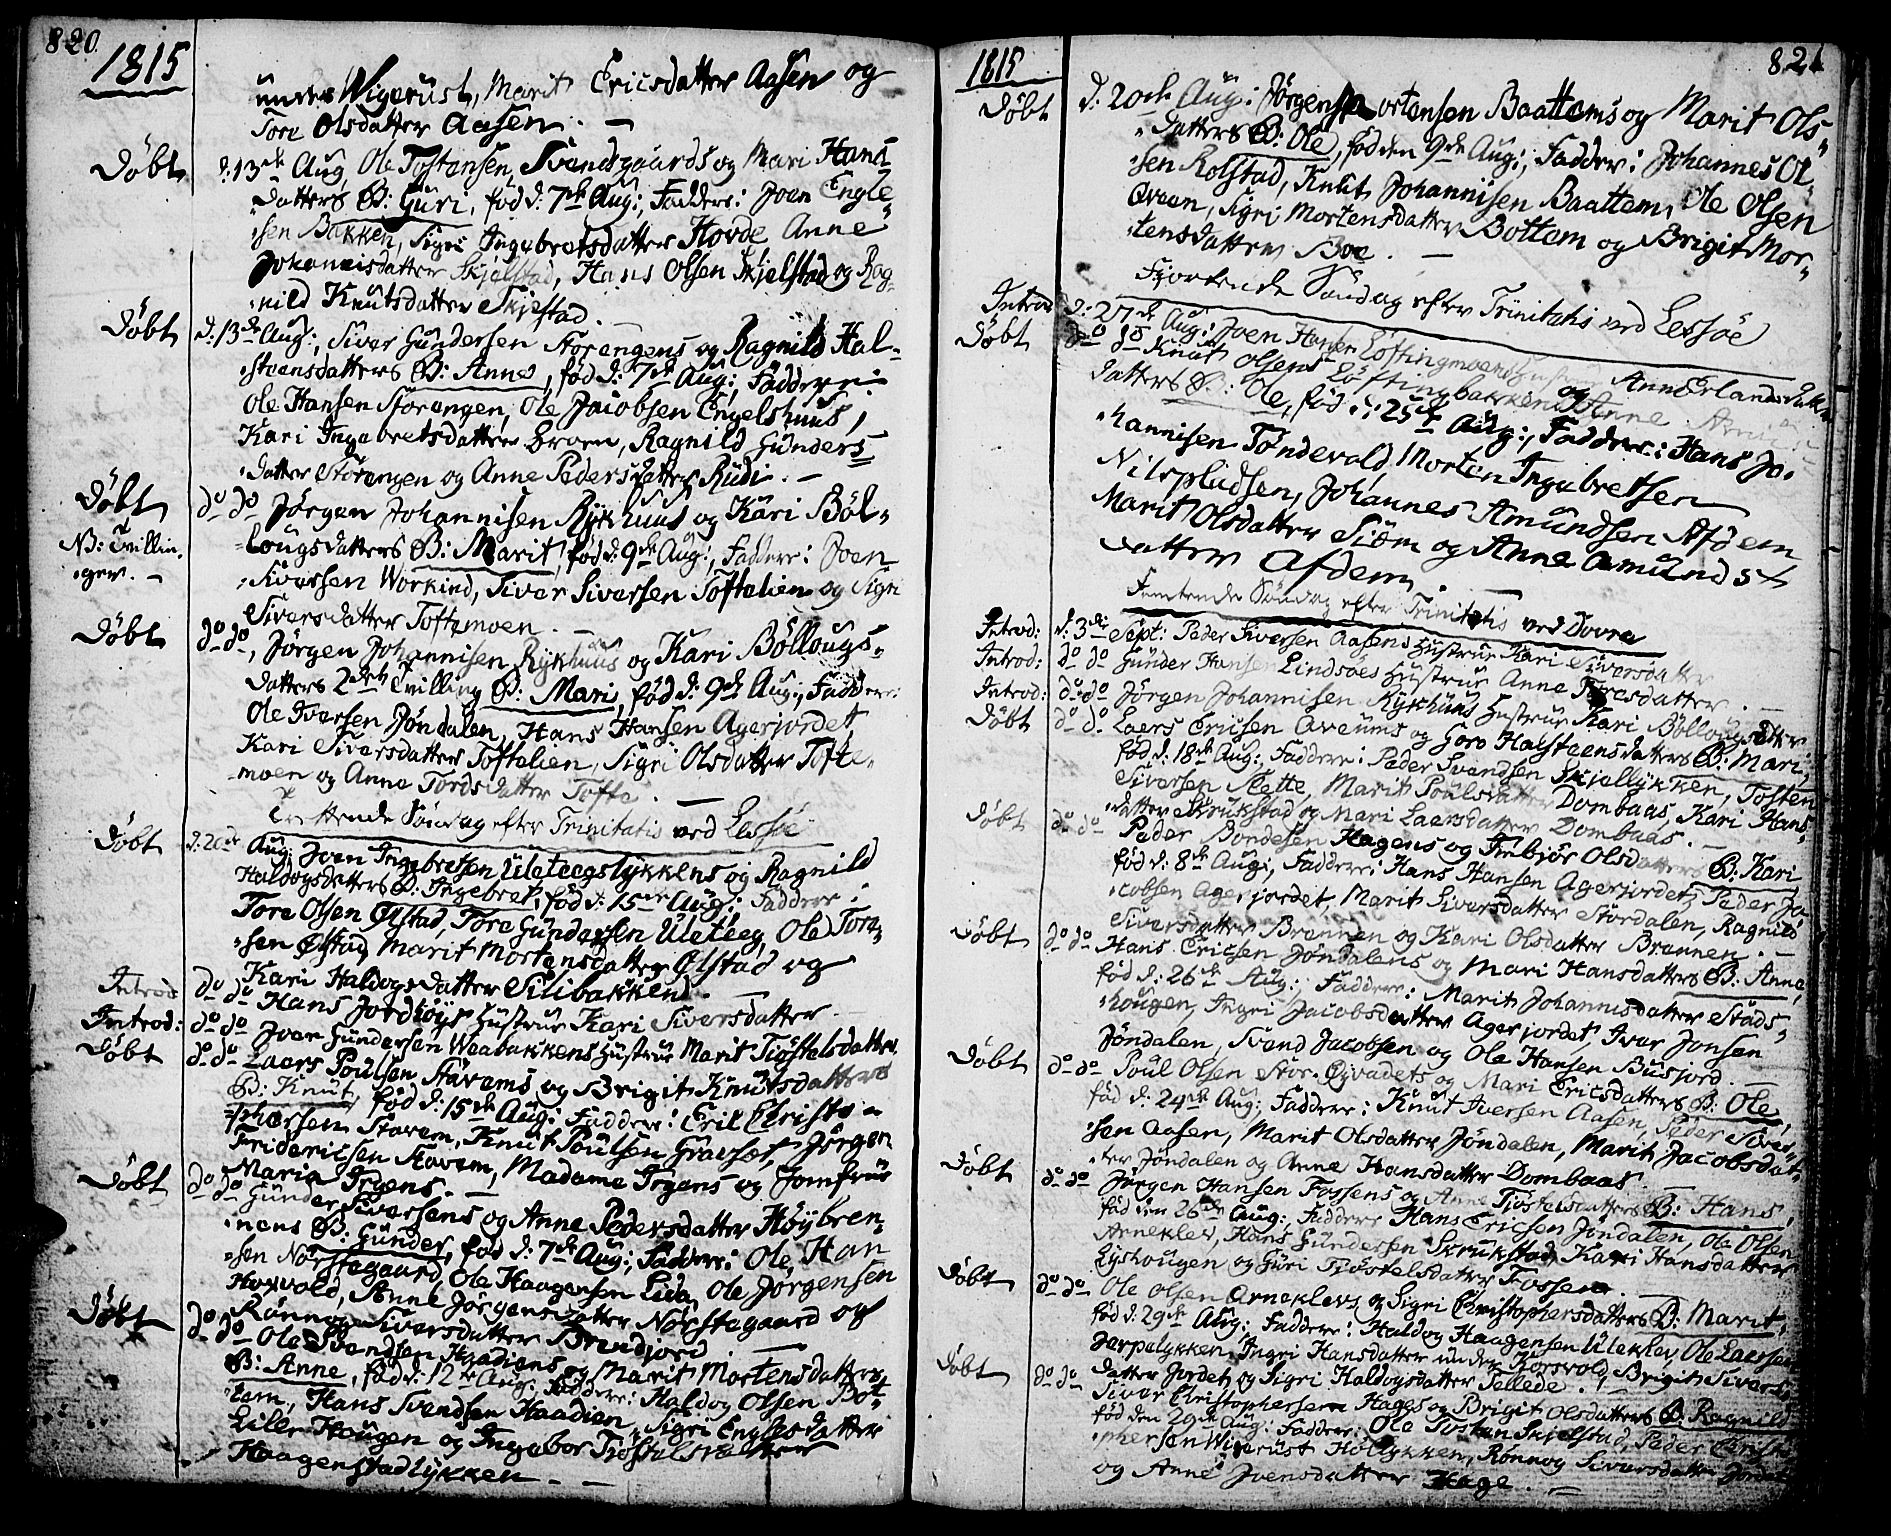 820.
1815
under Wigerust, Marit Ericsdatter Aasen og
Tore Olsdatter Aasen. —
Døbt d: 13de Aug Ole Tostensen Svendsgaards og Mari Hans
datters B: Guri, fød d: 7de Aug:, Faddere: Joen Engle
sen Bakken, Sigri Ingebretsdatter Hovde Anne
Johannisdatter Skjelstad, Hans Olsen Skjelstad og Rag
nild Knutsdatter Skjestad.
Døbt d: 13de Aug:, Siver Gundersen Storengens og Ragnild Hal
steensdatters B: Anne, fød d: 7de Aug:, Faddere:
Ole Hansen Storengen, Ole Jacobsen Engelshuus,
Kari Ingebretsdatter Broen, Ragnild Gunders
datter Storengen og Anne Pedersdatter Rudi. —
Døbt do do Jørgen Johannisen Rykhuus og Kari Bøl
N: Tvillin lougsdatters B: Marit, fød d: 9de Aug:, Faddere: Joen
ger. — Siversen Workind, Siver Siversen Toftelien og Sigri
Siversdatter Toftemoen.
Døbt do do, Jørgen Johannisen Rykhuus og Kari Bøllougs
datters 2den Tvilling B: Mari, fød d: 9de Aug:, Faddere:
Ole Iversen Jøndalen, Hans Hansen Agerjordet,
Kari Siversdatter Toftelien, Sigri Olsdatter Tofte
moen og Anne Tordsdatter Tofte. —
Trettende Søndag efter Trinitatis ved Lessøe
Døbt d: 20de Aug: Joen Ingebretsen Uleteegslykkens og Ragnild
Haldogsdatters B: Ingebret, fød d: 15de Aug:, Faddere:
Tore Olsen Ølstad, Tore Gundersen Uleteeg, Ole Tore
sen Ølstad, Marit Mortensdatter Ølstad og
Kari Haldogsdatter Silibakken. —
Introd do do Hans Jordhøys Hustrue Kari Siversdatter
Introd: do do Joen Gundersen Waabakkens Hustrue Marit Tiøstelsdatter
Døbt do do Laers Poulsen Stavems og Brigit Knutsdatters
B: Knut, fød d: 15de Aug: Faddere: Eric Christo
phersen Stavem, Knut Poulsen Gravset, Jørgen
Fridericsen Stavem, Madame Irgens og Jomfrue
Maria Irgens. —
Døbt do do Gunder Siversens og Anne Pedersdatter Høybren
nens B: Gunder, fød d: 7de Aug:, Faddere: Ole Han
sen Norstegaard, Ole Haagensen Lida, Ole Jørgensen
Hoxvold, Anne Jørgensdatter Norstegaard og
Rønnog Siversdatter Brendjord. —
Døbt do do Ole Svendsen Haadiens og Marit Mortensdatters
B: Anne, fød d: 12te Aug: Faddere: Haldog Olsen Bot
tem, Hans Svendsen Haadien, Sigri Englesdatter
Lille Haugen og Ingebor Tiøstelsdatter
Haagenstadlykken. —
1815
821
Døbt d: 20de Aug: Jørgen Mortensen Baattems og Marit Ols
datters B: Ole, fød den 9de Aug:, Faddere: Johannes Ol
sen Rolstad, Knut Johannisen Baattem, Ole Olsen
Øveen, Sigri Mortensdatter Bottem og Brigit Mor
tensdatter Boe. —
Fjortende Søndag efter Trinitatis ved Lessøe
Introd d: 27de Aug: Joen Hansen Løftingmoens Hustrue Anne Erlandsdatter
Døbt do do Knut Olsens Løftingbakken og Anne
datters B: Ole, fød d: 25de Aug:, Faddere: Hans Jo
hannisen Tøndevold, Morten Ingebretsen
Nilspladsen, Johannes Amundsen Afdem
Marit Olsdatter Siem og Anne Amunds
datter Afdem. —
Femtende Søndag efter Trinitatis ved Dovre
Introd: d: 3die Sept: Peder Siversen Aasens Hustrue Kari Siversdatter
Introd: do do Gunder Hansen Lindsøes Hustrue Anne Toresdatter
Introd: do do Jørgen Johannisen Rykhuus Hustrue Kari Bøllougsdatter
Døbt do do. Laers Ericsen Aveums og Goro Halsteensdatters B: Mari,
fød d: 18de Aug: Faddere: Peder Svendsen Skjellykken, Tosten
Siversen Slette, Marit Poulsdatter Dombaas, Kari Hans
datter Skrukstad og Mari Laersdatter Dombaas. —
Døbt do do Peder Bondesen Hagens og Imbjør Olsdatters B: Kari
fød d: 8de Aug:, Faddere: Hans Hansen Agerjordet, Peder Ja
cobsen Agerjordet, Marit Siversdatter Stordalen, Ragnild
Siversdatter Brennen og Kari Olsdatter Brennen. —
Døbt do do Hans Ericsen Jøndalens og Mari Hansdatters B: Anne,
fød d: 26de Aug: Faddere: Marit Johannisdatter Stads
hougen, Ingri Jacobsdatter Agerjordet, Iver Jonsen
Jøndalen, Svend Jacobsen og Ole Hansen Busjord. —
Døbt do do Poul Olsen Stor-Eqvadets og Mari Ericsdatters B: Ole,
fød d: 24de Aug: Faddere: Knut Iversen Aasen, Peder Siver
sen Aasen, Marit Olsdatter Jøndalen, Marit Jacobsdat
ter Jøndalen og Anne Hansdatter Dombaas —
Døbt do do Jørgen Hansen Fossens og Anne Tiøstelsdatters B: Hans,
fød den 26de Aug: Faddere Hans Ericsen Jøndalen, Ole Olsen
Arneklev, Hans Gundersen Skrukstad, Kari Hansdatter
Lyshougen og Guri Tiøstelsdatter Fossen. —
Døbt do do Ole Olsen Arneklevs og Sigri Christophersdatters B: Marit,
fød d: 29de Aug: Faddere: Haldog Haagensen Uleklev, Ole Laersen
Jerpelykken, Ingri Hansdatter under Korsvold, Brigit Sivers
datter Jordet og Sigri Haldogsdatter Tellede.
Døbt do do Siver Christophersen Hages og Brigit Olsdatters B: Ragnild
fød den 29de Aug: Faddere: Ole Tosten Skjelstad, Peder Christo
phersen Wigerust Hollykken, Rønnog Siversdatter Jordet
og Anne Joensdatter Hage. —